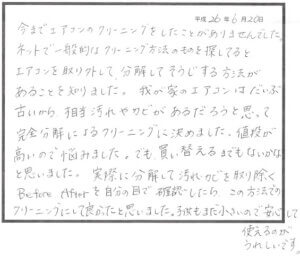 平成26年6月20日
今までエアコンのクリーニングをしたことがありませんでした。
ネットで一般的なクリーニング方法のものを探してると
エアコンを取り外して分解してそうじする方法が
あることを知りました。我が家のエアコンはだいぶ
古いから相当汚れやカビがあるだろうと思って
完全分解によるクリーニングに決めました。値段が
高いので悩みました。でも買い替えるまでもないかな
と思いました。実際に分解して汚れカビを取り除く
Before Afterを自分の目で確認したら、この方法での
クリーニングにして良かったと思いました。子供もまだ小さいので安心して
使えるのが
うれしいです。